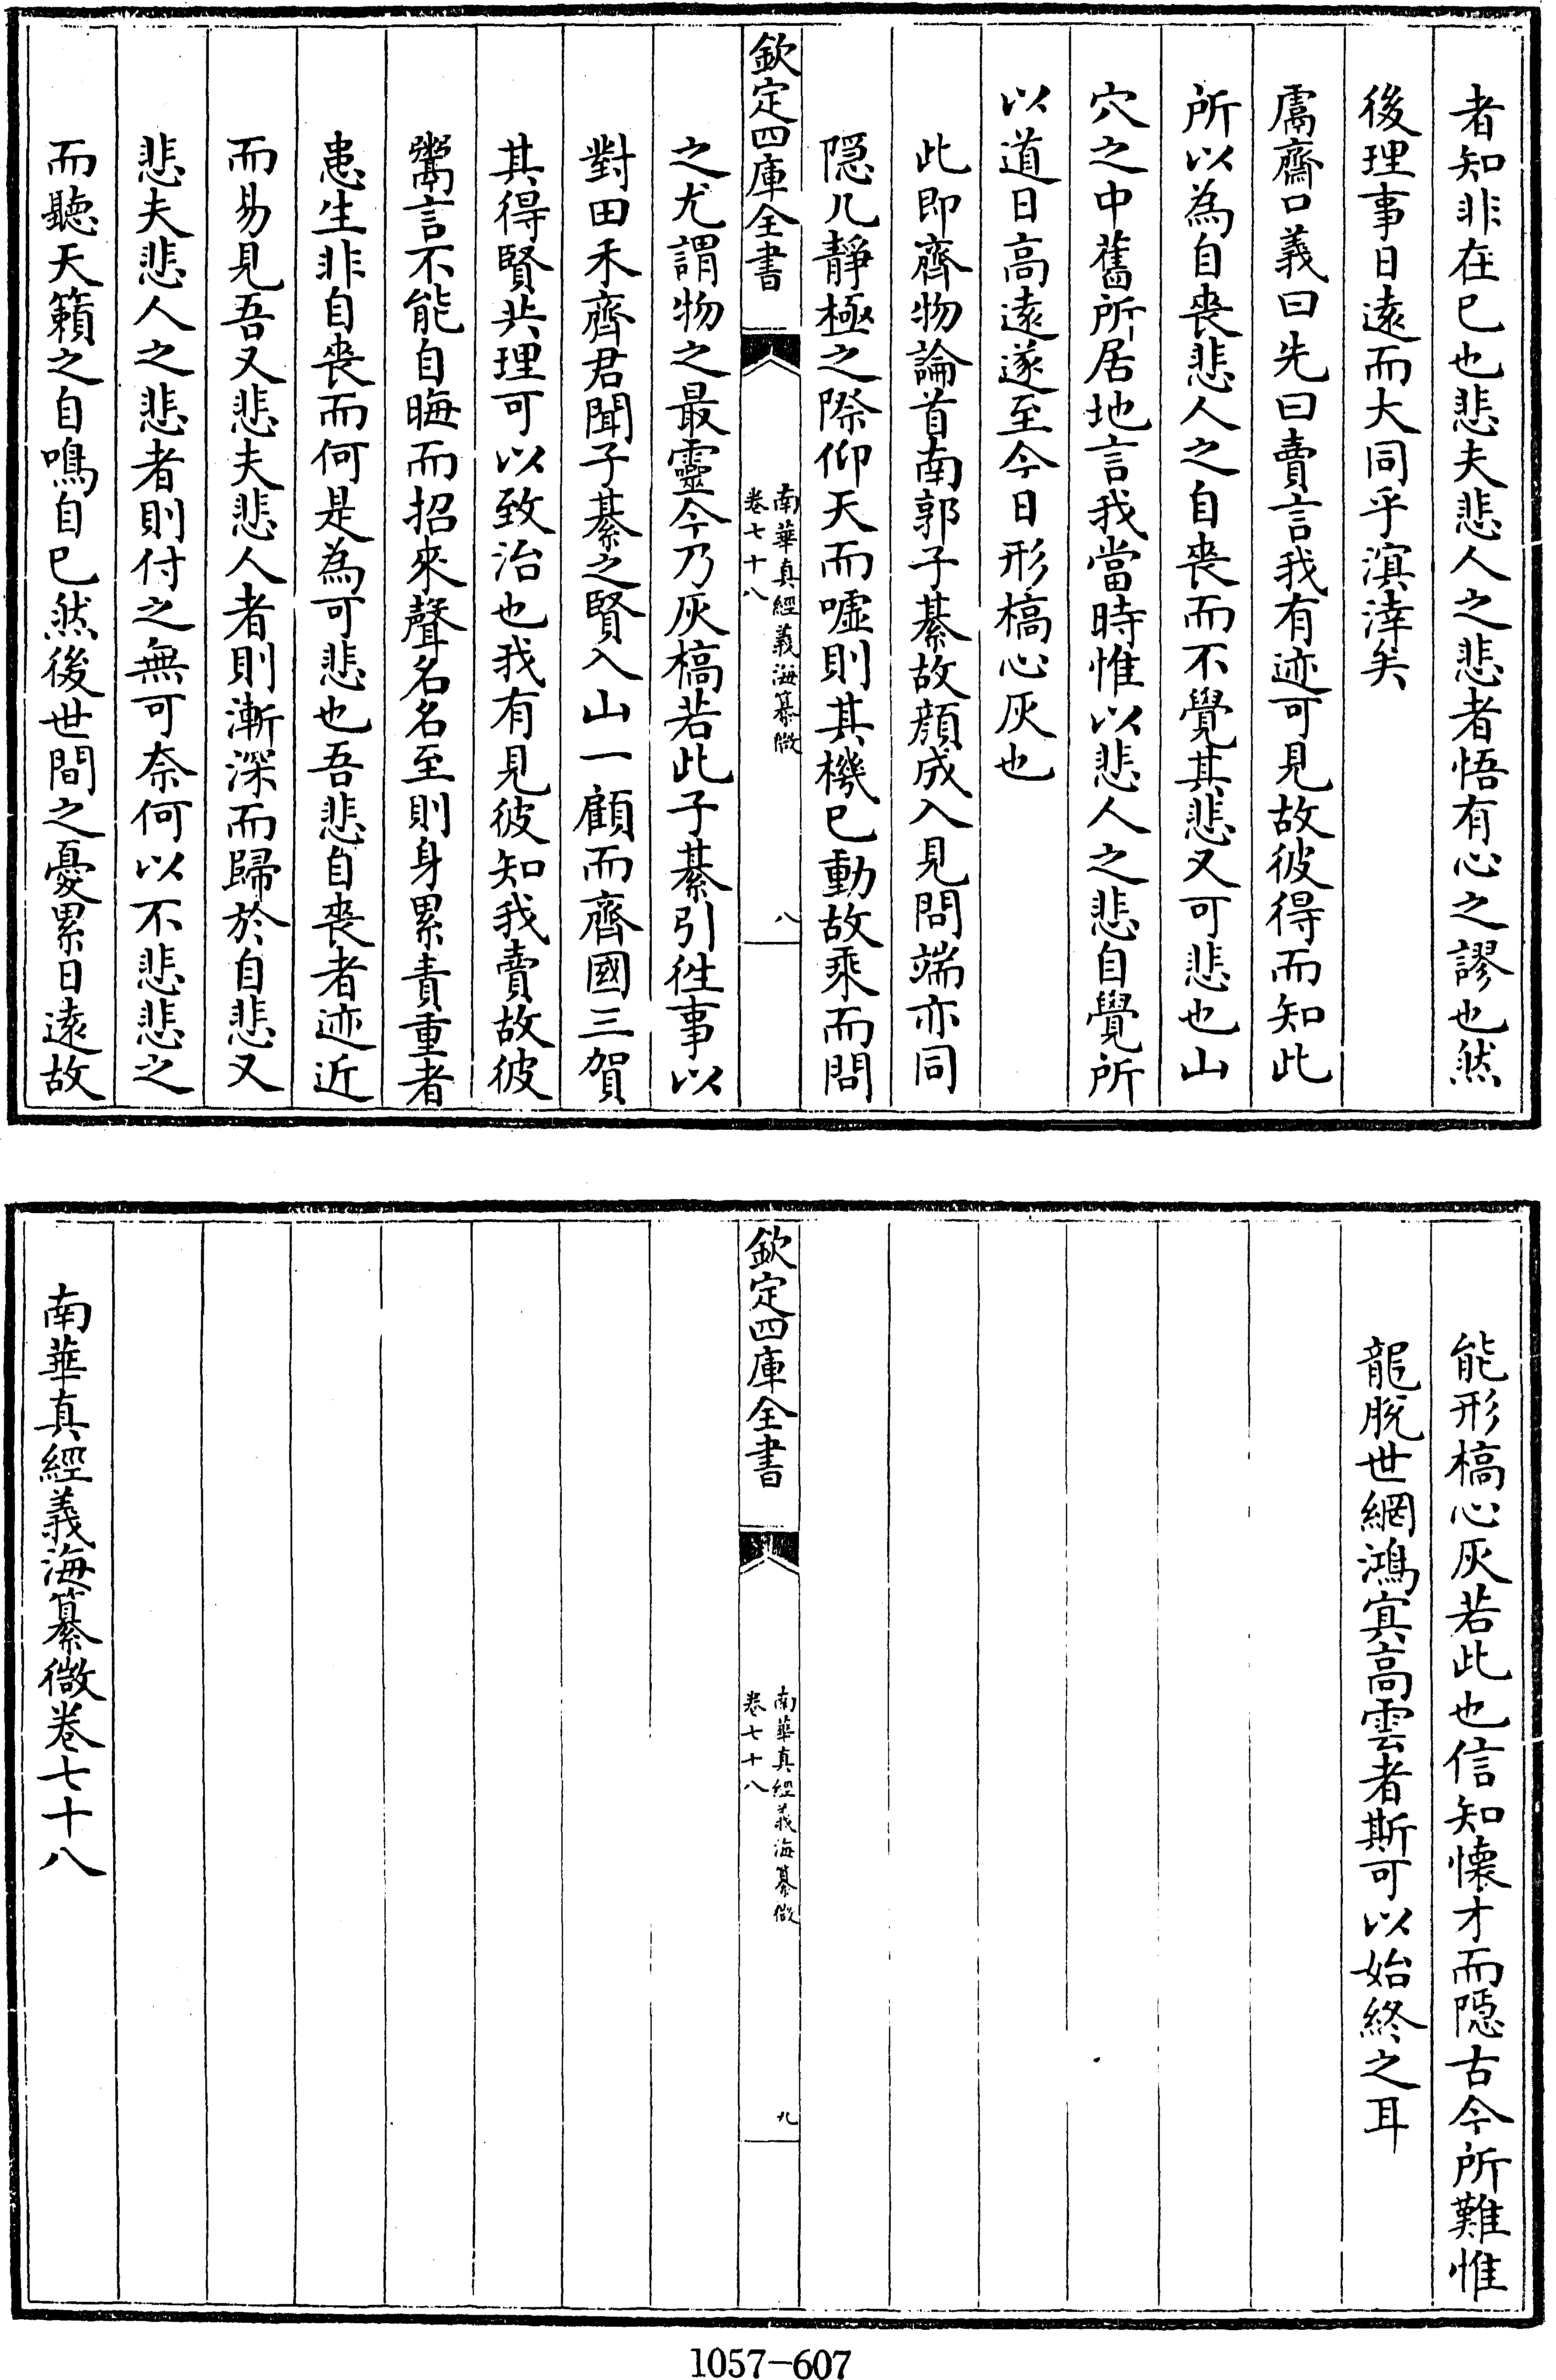 者知非在已也悲夫悲人之悲者悟有心之謬也然
後理事日逺而大同乎溟涬矣
鬳齋口義曰先曰賣言我有迹可見故彼得而知此
所以為自喪悲人之自喪而不覺其悲又可悲也山
穴之中舊所居地言我當時惟以悲人之悲自覺所
以道日高逺遂至今日形槁心灰也
此即齊物論首南郭子綦故顔成入見問端亦同
隠几靜極之際仰天而嘘則其機已動故乘而問
欽定四庫全書
南華真經義海纂微
卷七十八
八
之尤謂物之最靈今乃灰槁若此子綦引徃事以
對田禾齊君聞子綦之賢入山一顧而齊國三賀
其得賢共理可以致治也我有見彼知我賣故彼
鬻言不能自晦而招來聲名名至則身累責重者
患生非自喪而何是為可悲也吾悲自喪者迹近
而易見吾又悲夫悲人者則漸深而歸於自悲又
悲夫悲人之悲者則付之無可奈何以不悲悲之
而聽天籟之自鳴自已然後世間之憂累日逺故
能形槁心灰若此也信知懐才而隠古今所難惟
龍脫世網鴻㝠高雲者斯可以始終之耳
欽定四庫全書
南華真經義海纂微
卷七十八
九
南華真經義海纂微卷七十八
1057-607